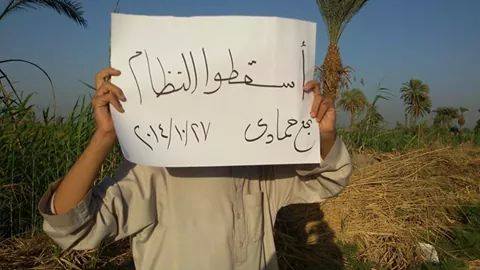 أسقطوا النظام
نجع حمادي
٢٠١٤/١٠/٢٧